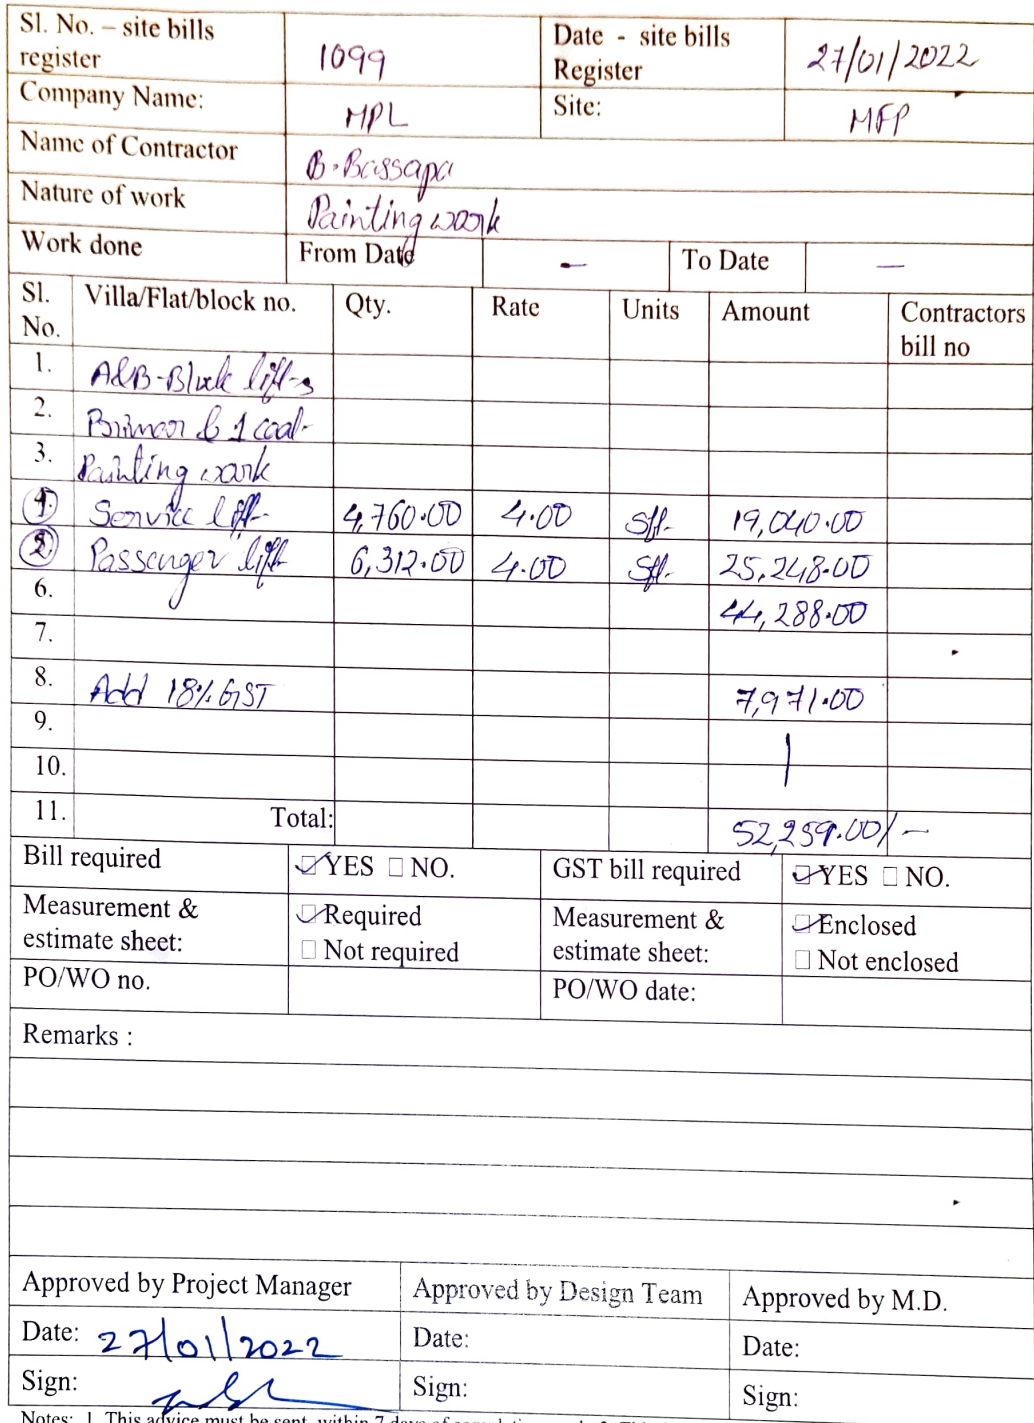 Sl. No. – site bills register 1099 Date - site bills Register 27/01/2022
Company Name: MPL Site: MFP
Name of Contractor B. Bassapa
Nature of work Painting work
Work done From Date - To Date -
Sl. No. Villa/Flat/block no. Qty. Rate Units Amount Contractors bill no
1. A&B-Block lift-s
2. & 1 coat-
3. Painting work
1. Service lift- 4,760.00 4.00 sft- 19,040.00
2. Passenger lift 6,312.00 4.00 sft- 25,248.00
6. 44,288.00
7.
8. Add 18% GST 7,971.00
9.
10.
11. Total: 52,259.00/-
Bill required ☑ YES ☐ NO. GST bill required ☑ YES ☐ NO.
Measurement & estimate sheet: ☑ Required ☐ Not required Measurement & estimate sheet: ☑ Enclosed ☐ Not enclosed
PO/WO no. PO/WO date:
Remarks :
Approved by Project Manager Approved by Design Team Approved by M.D.
Date: 27/01/2022 Date: Date:
Sign: Sign: Sign:
Notes: 1. This advice must be sent within 7 days of